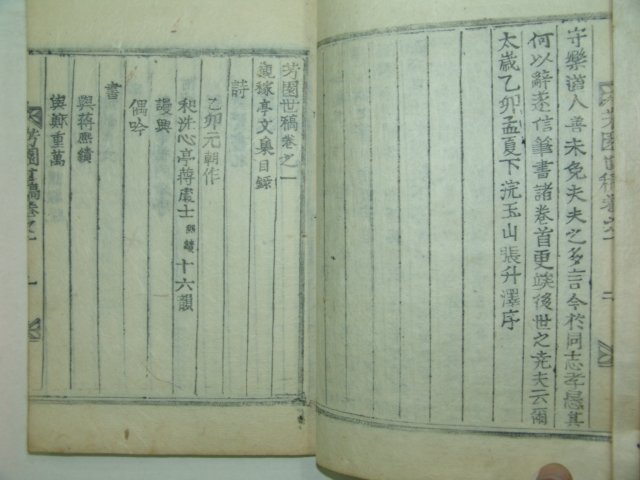 守樂道人善未免夫夫之多言今於同志孝思其
何以辭遂信筆書諸卷首更竢後世之堯夫云爾
太歲乙卯孟夏下浣玉山張升澤序
芳園世稿卷之一
觀稼亭文集目錄
詩
乙卯元朝作
和洗心亭蔣處士熙績十六韻
謾興
偶吟
書
與蔣熙績
與鄭重萬
芳園世稿卷之一
一